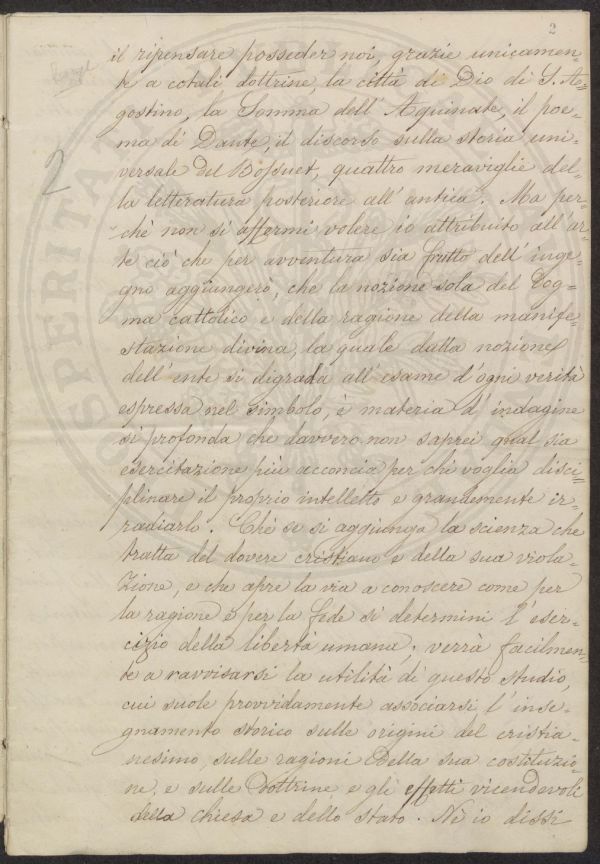 2
2
il ripensare posseder noi, grazie unicamen=
te a cotali dottrine, la città di Dio di S. A=
gostino, la Somma dell'Aquinate, il poe=
ma di Dante, il discorso sulla storia uni=
versale del Bossuet, quattro meraviglie del=
la letteratura posteriore all'antica. Ma per=
chè non si affermi volere io attribuito all'ar=
te ciò che per avventura sia frutto dell'inge=
gno aggiungerò, che la nozione sola del Dog=
ma cattolico e della ragione della manife=
stazione divina, la quale dalla nozione
dell'ente si digrada all'esame d'ogni verità
espressa nel simbolo, è materia d'indagine
sì profonda che davvero non saprei qual sia
esercitazione più acconcia per chi voglia disci=
plinare il proprio intelletto e grandemente ir=
radiarlo. Chè se si aggiunga la scienza che
tratta del dovere cristiano e della sua viola=
zione, e che apre la via a conoscere come per
la ragione e per la fede si determini l'eser=
cizio della libertà umana; verrà facilmen=
te a ravvisarsi la utilità di questo studio,
cui suole provvidamente associarsi l'inse=
gnamento storico sulle origini del cristia=
nesimo, sulle ragioni della sua costituzio=
ne, e sulle dottrine e gli effetti vicendevoli
della chiesa e dello stato. Nè io dissi